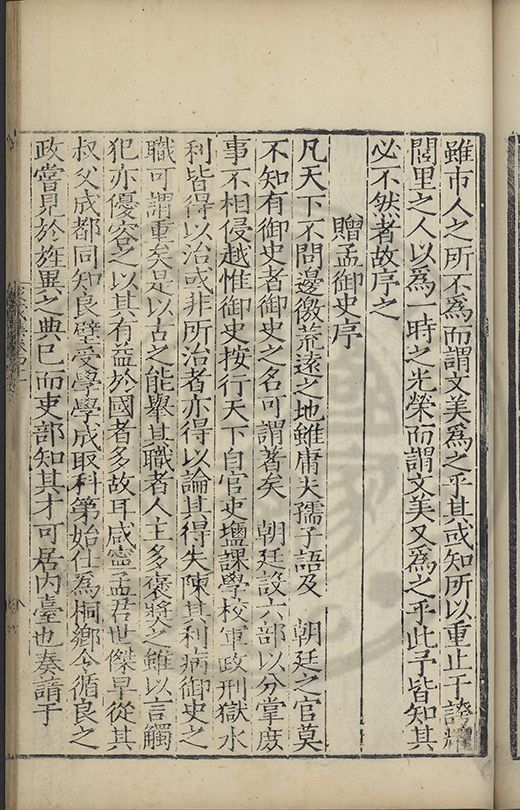 雖市人之所不為而謂文美為之乎其或知所以重止于誇耀
閭里之人以為一時之光榮而謂文美又為之乎此予皆知其
必不然者故序之
贈孟御史序
凡天下不問邊徼荒遠之地雖庸夫孺子語及 朝廷之官莫
不知有御史者御史之名可謂著矣 朝廷設六部以分掌庶
事不相侵越惟御史按行天下自官吏鹽課學校軍政刑獄水
利皆得以治或非所治者亦得以論其得失陳其利病御史之
職可謂重矣是以古之能舉其職者人主多褒奬之雖以言觸
犯亦優容之以其有益於國者多故耳咸寧孟君世傑早從其
叔父成都同知良壁受學學成取科第始仕為桐鄉令循良之
政嘗見於旌異之典巳而吏部知其才可居内臺也奏請于